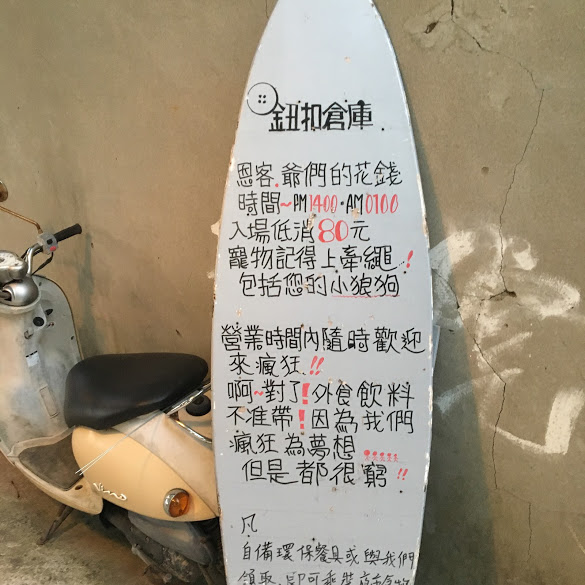 鈕扣倉庫
恩客.爺們的花錢
時間~PM1400·AM0100
入場低消80元
寵物記得上牽繩!
包括您的小狼狗
營業時間內隨時歡迎
來瘋狂!!
啊~對了!外食飲料
不准帶!因為我們
瘋狂為夢想......
但是都很窮!!
凡
自備環保餐具或與我們
領取,即可乘裝店內食物